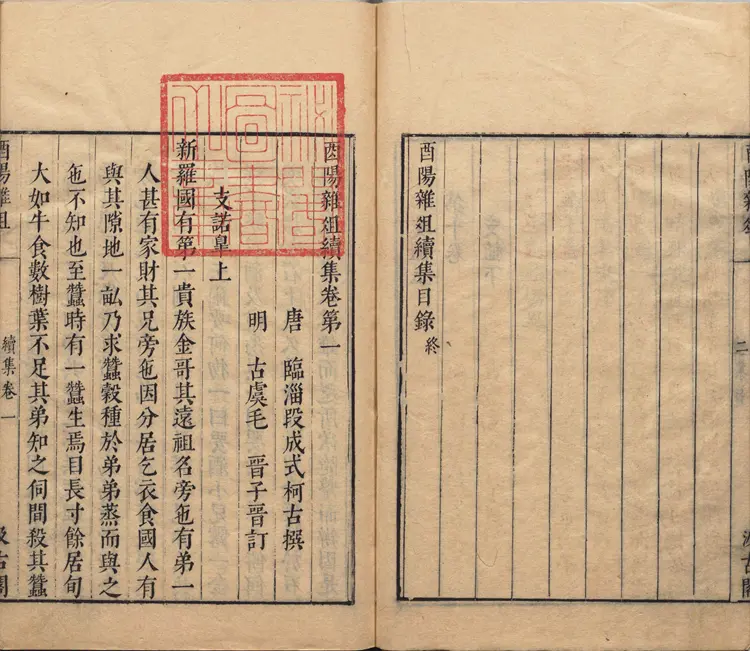 酉陽雜俎續集目錄 終
酉陽雜俎續集卷第一
唐 臨淄段成式柯古撰
明 古虞毛 晉子晉訂
支諾皐上
新羅國有第一貴族金哥其遠祖名旁㐌有弟一
人甚有家財其兄旁㐌因分居乞衣食國人有
與其隙地一畝乃求蠶穀種於弟弟蒸而與之
㐌不知也至蠶時有一蠶生焉目長寸餘居旬
大如牛食數樹葉不足其弟知之伺間殺其蠶
酉陽雜俎 續集卷一 汲古閣